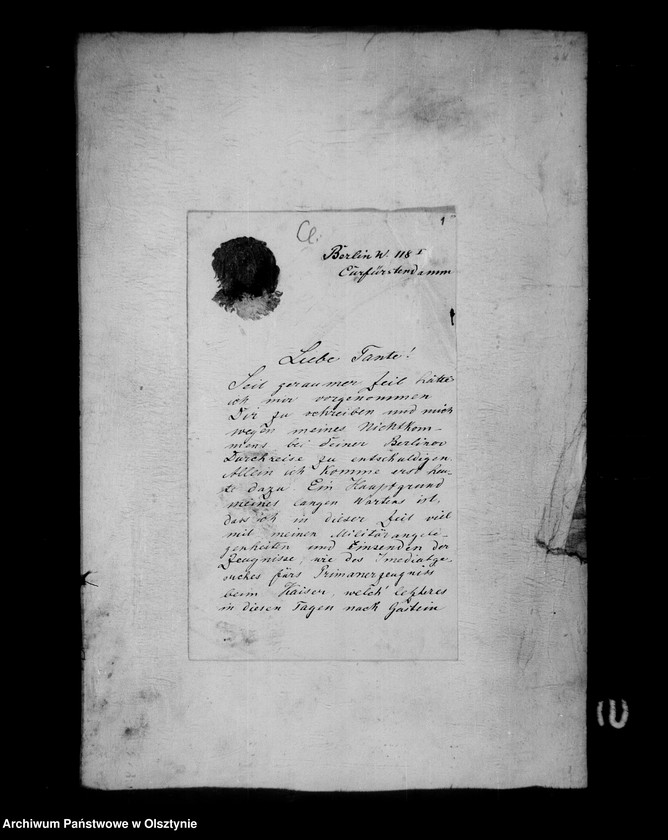 1
Cl.
Berlin W. 118 I
Curfürstendamm
Liebe Tante!
Seit geraumer Zeit hatte
ich mir vorgenommen
Dir zu schreiben und mich
wegen meines Nichtkom-
mens bei Deiner Berliner
Durchreise zu entschuldigen.
Allein ich komme erst heu-
te dazu. Ein Hauptgrund
meines langen Wartens ist,
dass ich in dieser Zeit viel
mit meinen Militärangele-
genheiten und Einsenden der
Zeugnisse, wie des Imediatge-
suches fürs Primanerzeugniss
beim Kaiser, welch' letzteres
in diesen Tagen nach Gastein
Archiwum Państwowe w Olsztynie